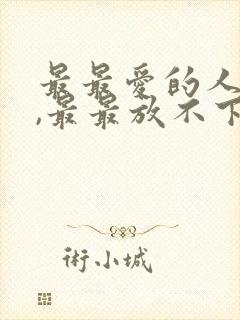 最最爱的人
,最最放不下
術小城